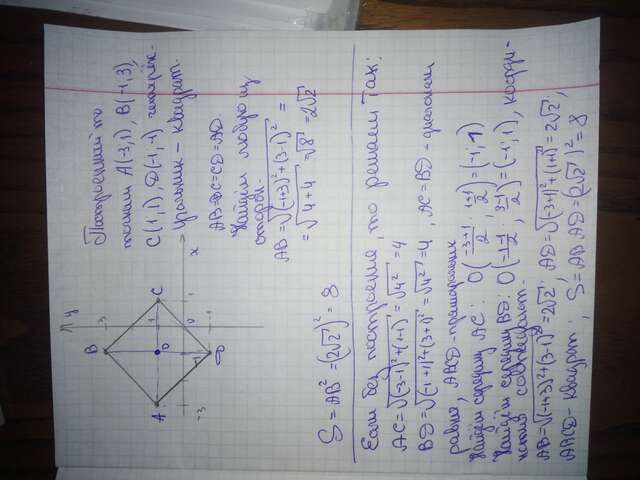 Построенный по
точкам A(-3,1), B(-1,3),
C(1,1), D(-1,-1) четырёх-
угольник - квадрат.
AB=BC=CD=AD.
Найдём любую из
сторон.
AB = √(-1+3)²+(3-1)² =
= √4+4 = √8 = 2√2
y
x
A
B
C
D
O
3
1
0
1
-1
-3
S = AB² = (2√2)² = 8
Если без построения, то решаем так:
AC = √(-3-1)²+(1-1)² = √4² = 4
BD = √(-1+1)²+(3+1)² = √4² = 4, AC = BD - диагонали
равны, ABCD - прямоугольник
Найдём середину AC: O(-3+1/2; 1+1/2) = (-1,1)
Найдём середину BD: O(-1-1/2; 3-1/2) = (-1,1), коорди-
наты совпадают.
AB = √(-1+3)²+(3-1)² = 2√2; AD = √(-3+1)²+(1+1)² = 2√2;
ABCD - квадрат; S = AB·AD = (2√2)² = 8